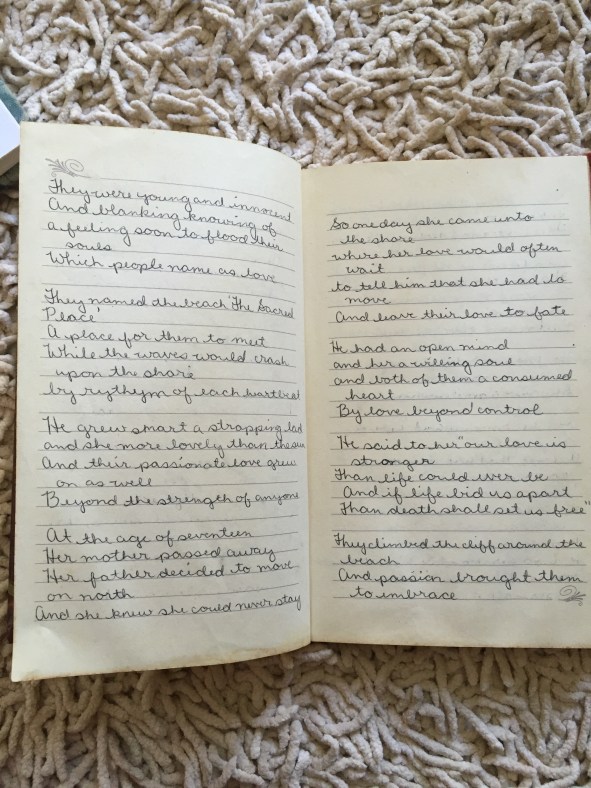 They were young and innocent
And blanking knowing of
a feeling soon to flood their
souls
Which people name as love
They named the beach 'The Sacred
Place'
A place for them to meet
While the waves would crash
upon the share
by rythym of each hartbeat
He grew smart a strapping lad
and she more lovely than the sun
And their passionate love grew
on as well
Beyond the strength of anyone
At the age of seventeen
Her mother passed away
Her father decided to move
on north
And she knew she could never stay
So one day she came unto
the shore
where her love would often
wait
to tell him that she had to
move
And leave their love to fate
He had an open mind
and her a willing soul
and both of them a consumed
heart
By love beyond control
He said to her "our love is
stronger
Than life could ever be
And if life bid us apart
Than death shall set us free"
They climbed the cliff around the
beach
And passion brought them
to embrace